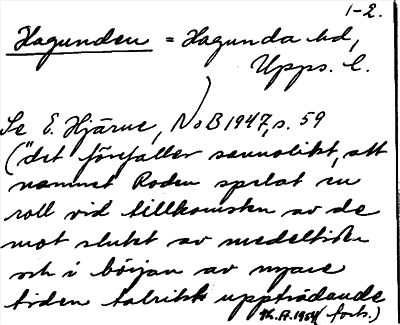 1-2.
Hagunden = Hagunda hd,
Upps. l.
Se E. Hjärne, NoB 1947, s. 59
("det förefaller sannolikt, att
namnet Roden spelat en
roll vid tillkomsten av de
mot slutet av medeltiden
och i början av nyare
tiden talrikt uppträdande
Th. A. 1954 (forts.)